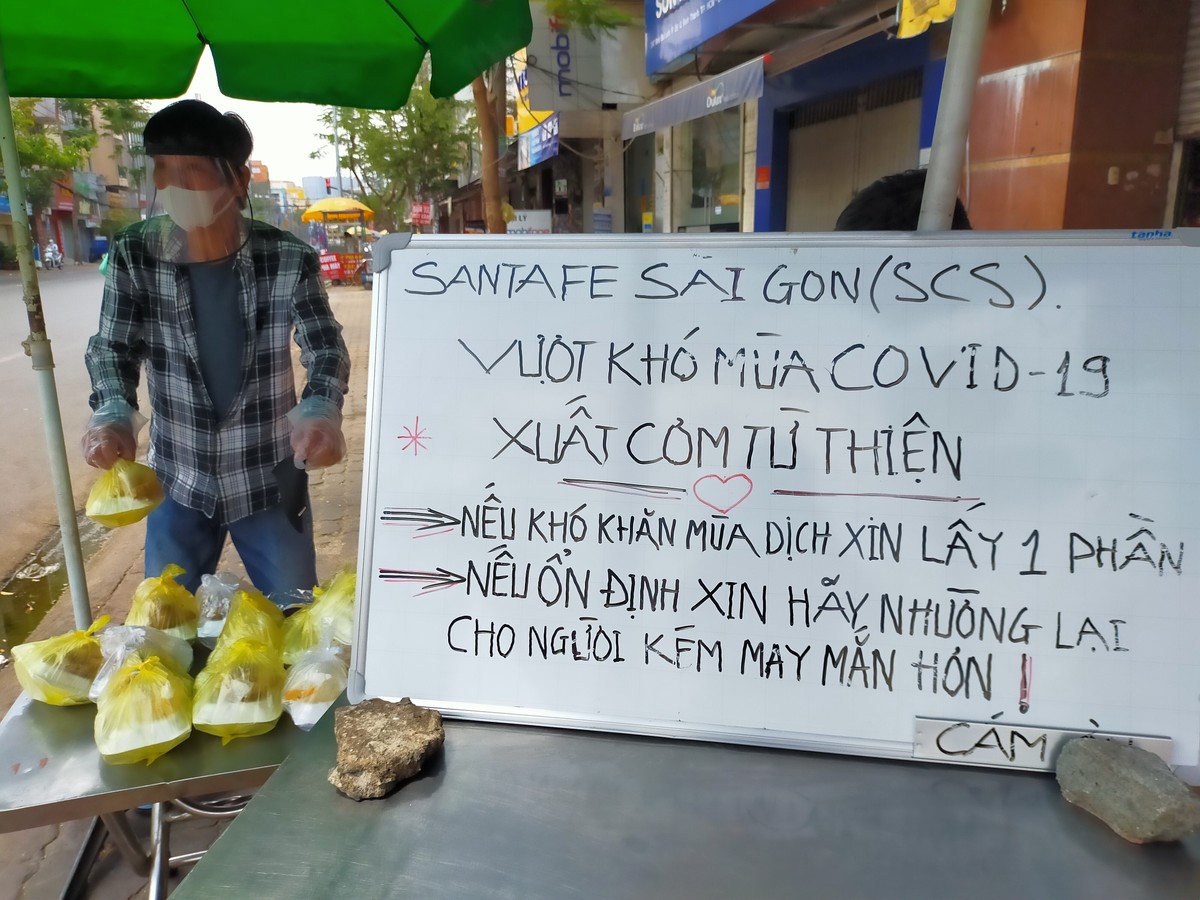 tanha
SANTAFE SÀI GON (SCS).
VƯỢT KHÓ MÙA COVID-19
* XUẤT CƠM TỪ THIỆN
NẾU KHÓ KHĂN MÙA DỊCH XIN LẤY 1 PHẦN
NẾU ỔN ĐỊNH XIN HÃY NHƯỜNG LẠI
CHO NGƯỜI KÉM MAY MẮN HƠN !
CÁM
mobif
Dulux